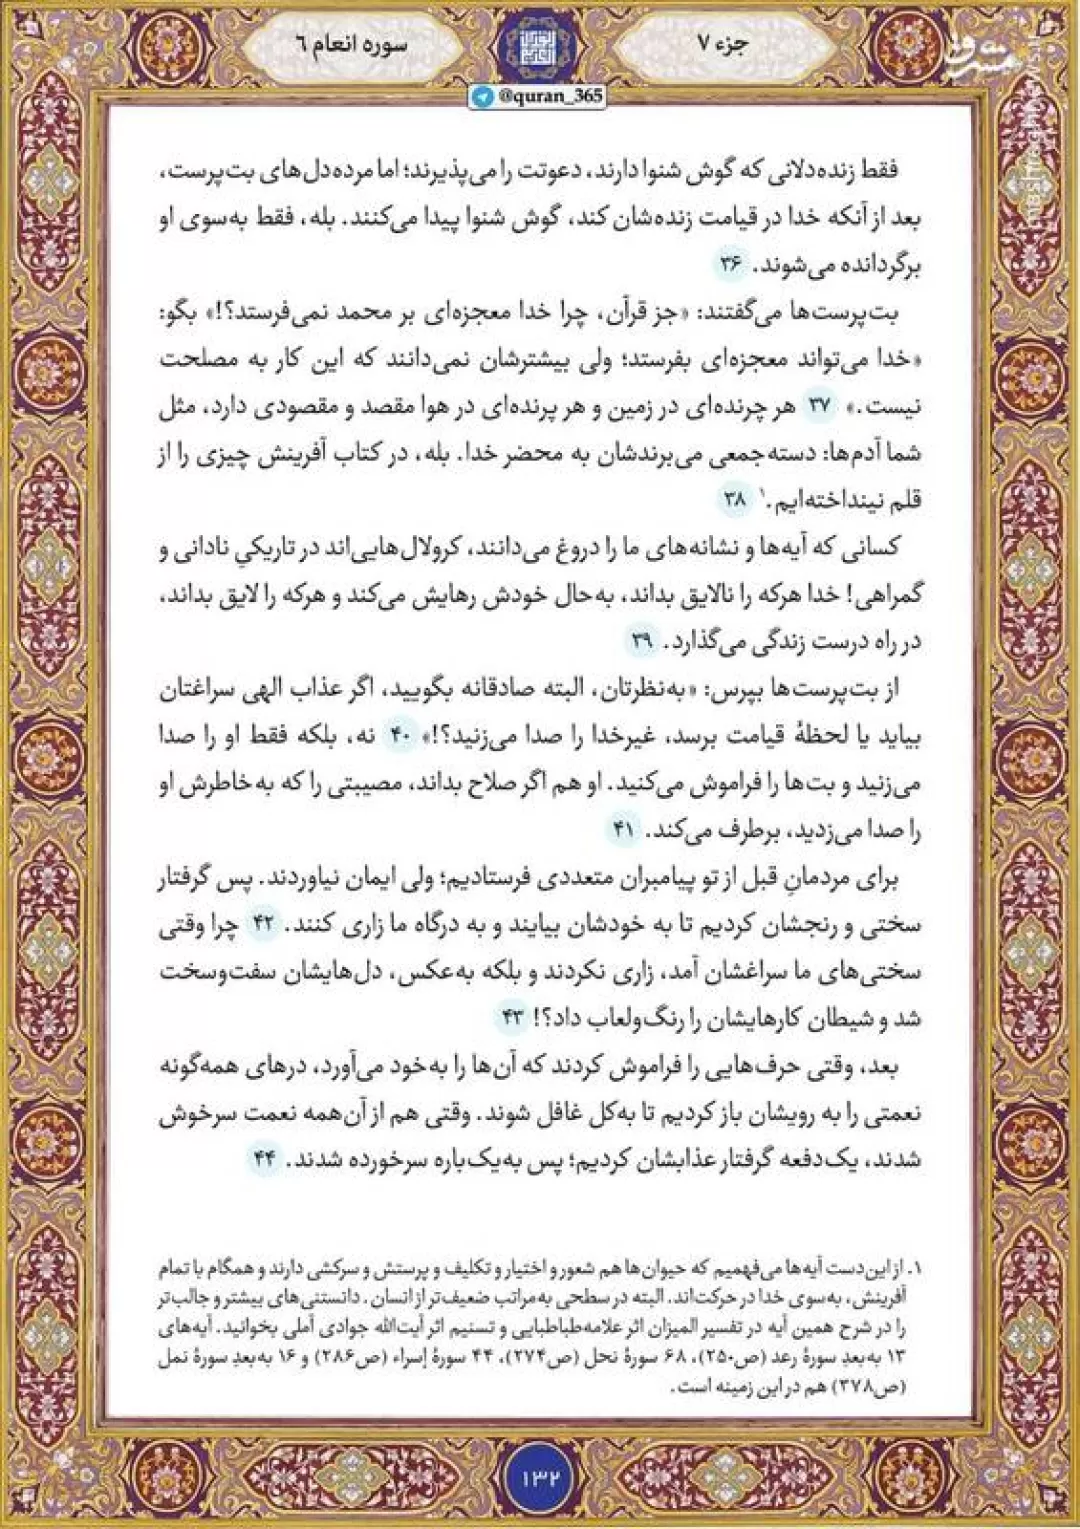 جزء ۷
سوره انعام ۶
مشرق
mashreghnews.ir
@quran_365
فقط زنده‌دلانی که گوش شنوا دارند، دعوتت را می‌پذیرند؛ اما مرده‌دل‌های بت‌پرست،
بعد از آنکه خدا در قیامت زنده‌شان کند، گوش شنوا پیدا می‌کنند. بله، فقط به‌سوی او
برگردانده می‌شوند. ۳۶
بت‌پرست‌ها می‌گفتند: «جز قرآن، چرا خدا معجزه‌ای بر محمد نمی‌فرستد؟!» بگو:
«خدا می‌تواند معجزه‌ای بفرستد؛ ولی بیشترشان نمی‌دانند که این کار به مصلحت
نیست.» ۳۷ هر چرنده‌ای در زمین و هر پرنده‌ای در هوا مقصد و مقصودی دارد، مثل
شما آدم‌ها: دسته‌جمعی می‌برندشان به محضر خدا. بله، در کتاب آفرینش چیزی را از
قلم نینداخته‌ایم.۱ ۳۸
کسانی که آیه‌ها و نشانه‌های ما را دروغ می‌دانند، کرولال‌هایی‌اند در تاریکیِ نادانی و
گمراهی! خدا هرکه را نالایق بداند، به‌حال خودش رهایش می‌کند و هرکه را لایق بداند،
در راه درست زندگی می‌گذارد. ۳۹
از بت‌پرست‌ها بپرس: «به‌نظرتان، البته صادقانه بگویید، اگر عذاب الهی سراغتان
بیاید یا لحظهٔ قیامت برسد، غیرخدا را صدا می‌زنید؟!» ۴۰ نه، بلکه فقط او را صدا
می‌زنید و بت‌ها را فراموش می‌کنید. او هم اگر صلاح بداند، مصیبتی را که به‌خاطرش او
را صدا می‌زدید، برطرف می‌کند. ۴۱
برای مردمانِ قبل از تو پیامبران متعددی فرستادیم؛ ولی ایمان نیاوردند. پس گرفتار
سختی و رنجشان کردیم تا به خودشان بیایند و به درگاه ما زاری کنند. ۴۲ چرا وقتی
سختی‌های ما سراغشان آمد، زاری نکردند و بلکه به‌عکس، دل‌هایشان سفت‌وسخت
شد و شیطان کارهایشان را رنگ‌ولعاب داد؟! ۴۳
بعد، وقتی حرف‌هایی را فراموش کردند که آن‌ها را به‌خود می‌آورد، درهای همه‌گونه
نعمتی را به رویشان باز کردیم تا به‌کل غافل شوند. وقتی هم از آن‌همه نعمت سرخوش
شدند، یک‌دفعه گرفتار عذابشان کردیم؛ پس به‌یک‌باره سرخورده شدند. ۴۴
۱. از این‌دست آیه‌ها می‌فهمیم که حیوان‌ها هم شعور و اختیار و تکلیف و پرستش و سرکشی دارند و همگام با تمام
آفرینش، به‌سوی خدا در حرکت‌اند. البته در سطحی به‌مراتب ضعیف‌تر از انسان. دانستنی‌های بیشتر و جالب‌تر
را در شرح همین آیه در تفسیر المیزان اثر علامه‌طباطبایی و تسنیم اثر آیت‌الله جوادی آملی بخوانید. آیه‌های
۱۳ به‌بعدِ سورهٔ رعد (ص۲۵۰)، ۶۸ سورهٔ نحل (ص۲۷۴)، ۴۴ سورهٔ إسراء (ص۲۸۶) و ۱۶ به‌بعدِ سورهٔ نمل
(ص۳۷۸) هم در این زمینه است.
۱۳۲